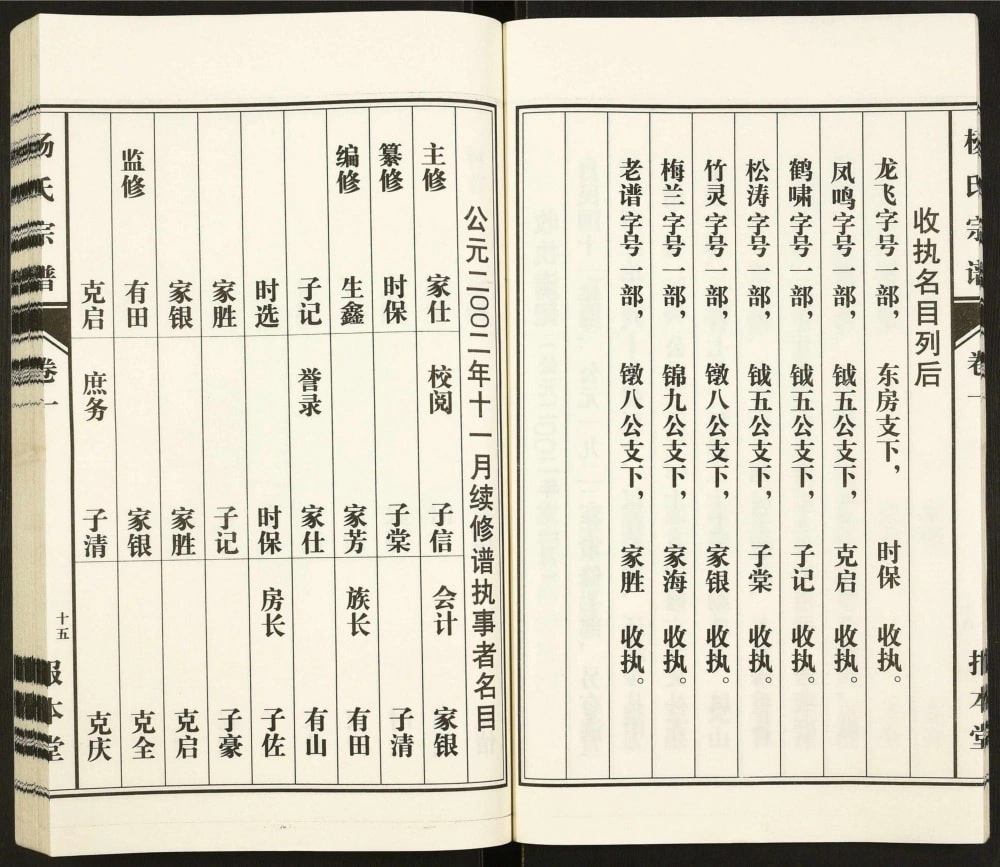 杨氏宗谱
卷一
报本堂
收执名目列后
龙飞字号一部， 东房支下， 时保 收执。
凤鸣字号一部， 钺五公支下， 克启 收执。
鹤啸字号一部， 钺五公支下， 子记 收执。
松涛字号一部， 钺五公支下， 子棠 收执。
竹灵字号一部， 镦八公支下， 家银 收执。
梅兰字号一部， 锦九公支下， 家海 收执。
老谱字号一部， 镦八公支下， 家胜 收执。
公元二〇〇二年十一月续修谱执事者名目
主修 家仕
纂修 时保
编修 生鑫
子记
时选
家胜
家银
监修 有田
克启
校阅 子信
子棠
家芳
誊录 家仕
时保
子记
家胜
家银
庶务 子清
会计 家银
子清
族长 有田
有山
房长 子佐
子豪
克启
克全
克庆
杨氏宗谱
卷一
十五
报本堂